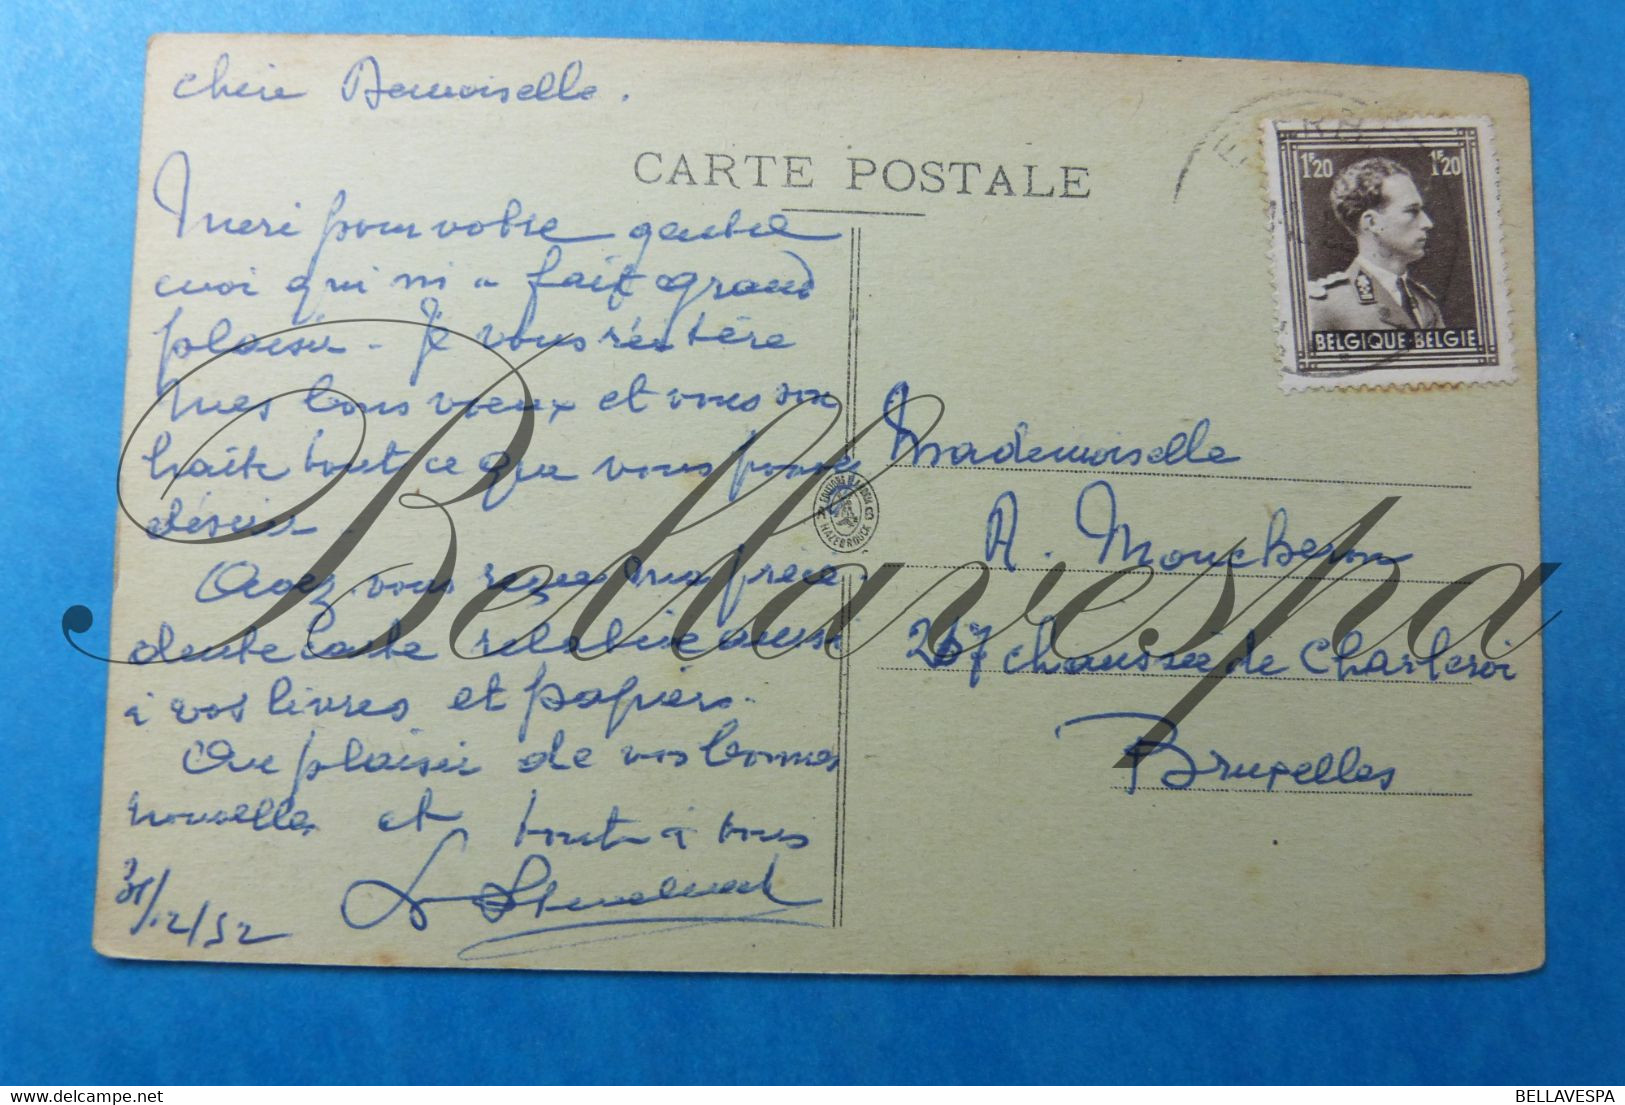 Chère Demoiselle.
CARTE POSTALE
Merci pour votre gentil
envoi qui m'a fait grand
plaisir - Je vous réitère
mes bons voeux et vous sou
haite tout ce que vous pouvez
désirer.
Avez-vous reçu ma précé-
dente carte relative aussi
à vos livres et papiers.
Au plaisir de vos bonnes
nouvelles et tout à vous
31/12/52
1F20 1F20
BELGIQUE·BELGIE
EDITIONS
HAZEBROUCK
Mademoiselle
A. Moucheron
267 chaussée de Charleroi
Bruxelles
Bellavespa
BELLAVESPA